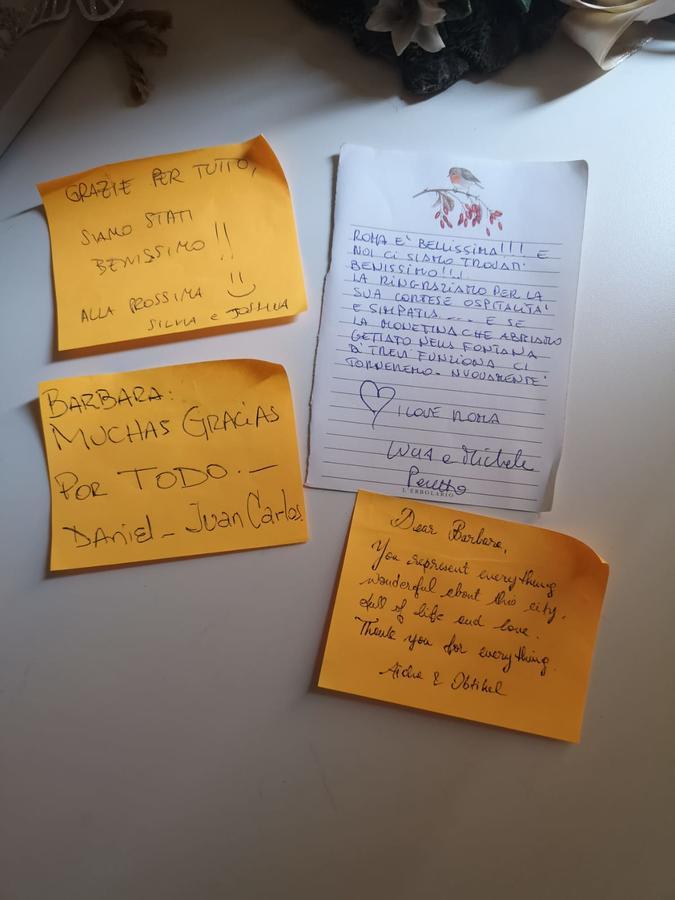 GRAZIE PER TUTTO,
SIAMO STATI
BENISSIMO !!
ALLA PROSSIMA
SILVIA e
ROMA E' BELLISSIMA!!! E
NOI CI SIAMO TROVATI
BENISSIMO!!!
LA RINGRAZIAMO PER LA
SUA CORTESE OSPITALITA'
E SIMPATIA .... E SE
LA MONETINA CHE ABBIAMO
GETTATO NELLA FONTANA
DI TREVI FUNZIONA CI
TORNEREMO NUOVAMENTE!
I LOVE ROMA
e Michele
L'ERBOLARIO
BARBARA:
MUCHAS GRACIAS
POR TODO.—
DANiEL - Juan Carlos.
Dear Barbara,
You represent everything
wonderful about this city,
full of life and love.
Thank you for everything.